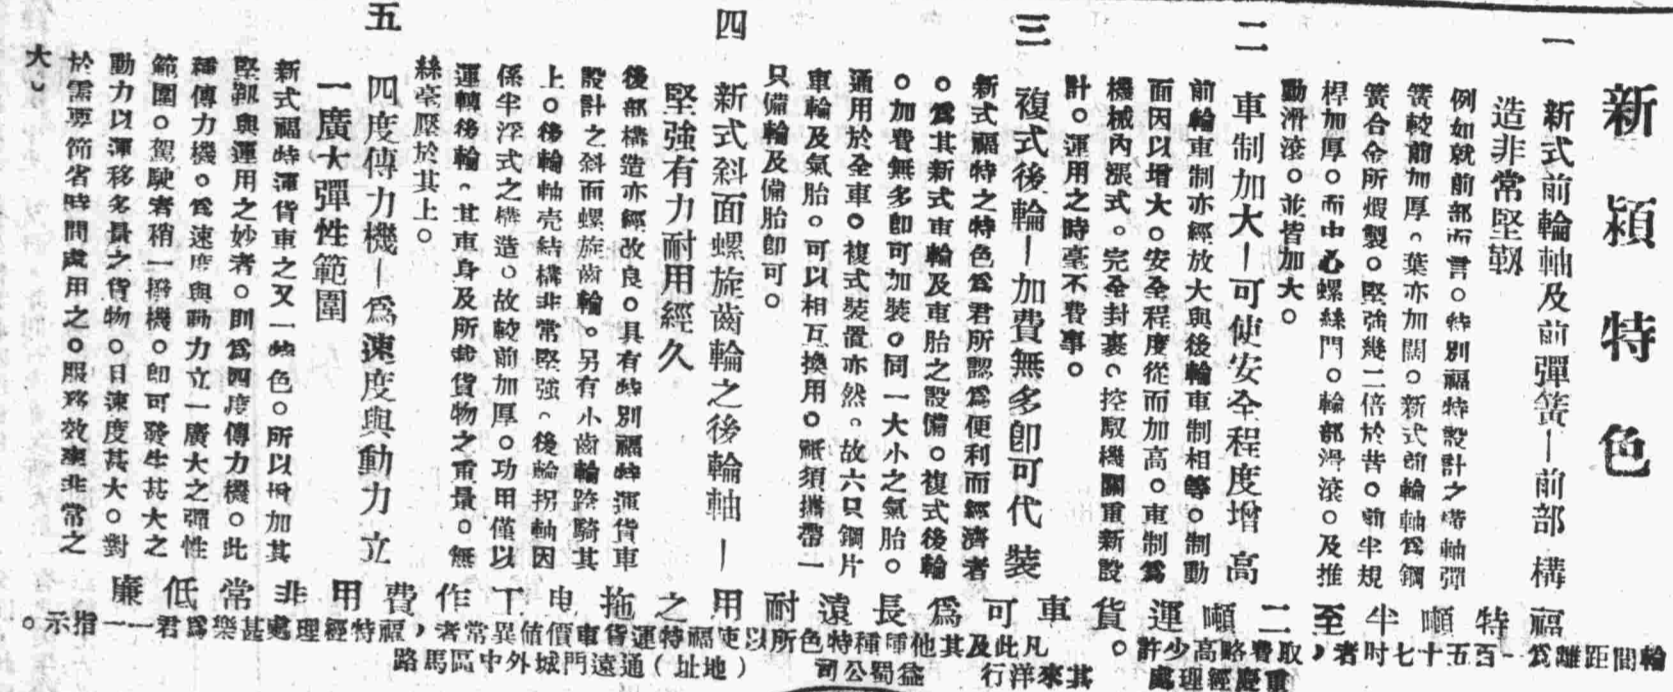 新穎特色
一 新式前輪軸及前彈簧—前部構
造非常堅韌
例如就前部而言。特別福特設計之帶軸彈
簧較前加厚。葉亦加闊。新式前輪軸爲鋼
簧合金所煅製。堅強幾二倍於昔。前半規
桿加厚。而中心螺絲門。輪部滑滾。及推
動滑滾。並皆加大。
二 車制加大—可使安全程度增高
前輪車制亦經放大與後輪車制相等。制動
面因以增大。安全程度從而加高。車制爲
機械內漲式。完全封裹。控馭機關重新設
計。運用之時毫不費事。
三 複式後輪—加費無多卽可代裝
新式福特之特色爲君所認爲便利而經濟者
。爲其新式車輪及車胎之設備。複式後輪
。加費無多卽可加裝。同一大小之氣胎。
通用於全車。複式裝置亦然。故六只鋼片
車輪及氣胎。可以相互換用。祇須攜帶一
只備輪及備胎卽可。
四 新式斜面螺旋齒輪之後輪軸—
堅強有力耐用經久
後部構造亦經改良。具有特別福特運貨車
設計之斜而螺旋齒輪。另有小齒輪跨騎其
上。後輪軸壳結構非常堅強。後輪拐軸因
係半浮式之構造。故較前加厚。功用僅以
運轉後輪。其車身及所載貨物之重量。無
絲毫壓於其上。
五 四度傳力機—爲速度與動力立
一廣大彈性範圍
新式福特運貨車之又一特色。所以增加其
堅韌與運用之妙者。則爲四度傳力機。此
種傳力機。爲速度與動力立一廣大之彈性
範圍。駕駛者稍一撥機。卽可發生甚大之
動力以運移多量之貨物。日速度甚大。對
於需要節省時間處用之。服務效率非常之
大。
福特噸半至二噸運貨車可爲長遠耐用之拖曳工作費用非常低廉
輪間距離爲一百五十七吋者，取費略高少許。
凡此及其他種種特色所以使福特運貨車價值異常者，福特經理處甚樂爲君一一指示。
重慶經理處
其來洋行
益蜀公司
（地址）通遠門城外中區馬路